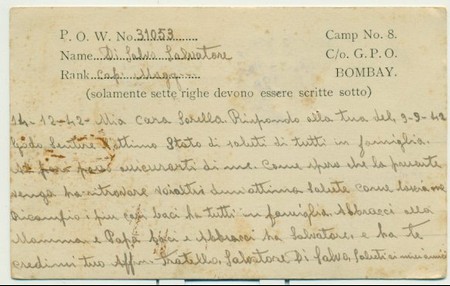 P. O. W. No. 31053 Camp No. 8.
Name Di Salvo Salvatore C/o. G. P. O.
Rank Cap. Magg. BOMBAY.
(solamente sette righe devono essere scritte sotto)
14-12-42- Mia Cara Sorella, Rispondo alla tua del, 9-9-42
Godo Sentire l'ottimo Stato di saluti di tutti in famiglia.
posso assicurarti di me. Come spero che la presente
venga ha ritrovare voialtri d'un attima Salute come
Ricambio i più cari baci ha tutti in famiglia. Abbracci alla
Mamma e Papà baci e Abbracci ha Salvatore, e ha te
credimi tuo Affm. Fratello, Salvatore Di Salvo, Saluti ai miei amici